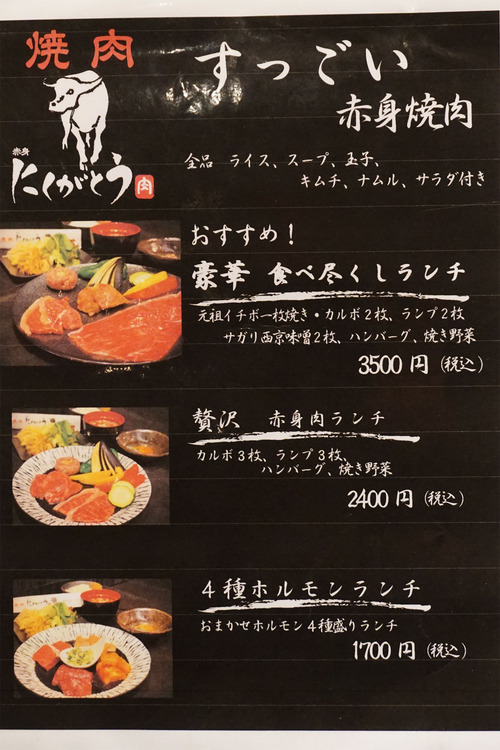 焼肉
すっごい
赤身焼肉
赤身
にくがとう
肉
全品 ライス、スープ、玉子、
キムチ、ナムル、サラダ付き
おすすめ！
豪華 食べ尽くしランチ
元祖イチボ一枚焼き・カルボ2枚、ランプ2枚
サガリ西京味噌2枚、ハンバーグ、焼き野菜
3500円(税込)
贅沢 赤身肉ランチ
カルボ3枚、ランプ3枚、
ハンバーグ、焼き野菜
2400円(税込)
4種ホルモンランチ
おまかせホルモン4種盛りランチ
1700円(税込)